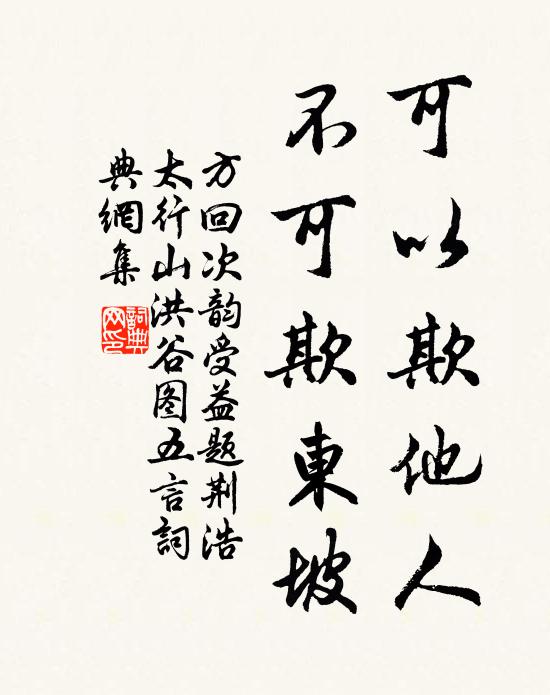 可以欺他人
不可欺東坡
方回次韵受益題荆浩
太行山洪谷图五言詞
典網集
詞典
网印